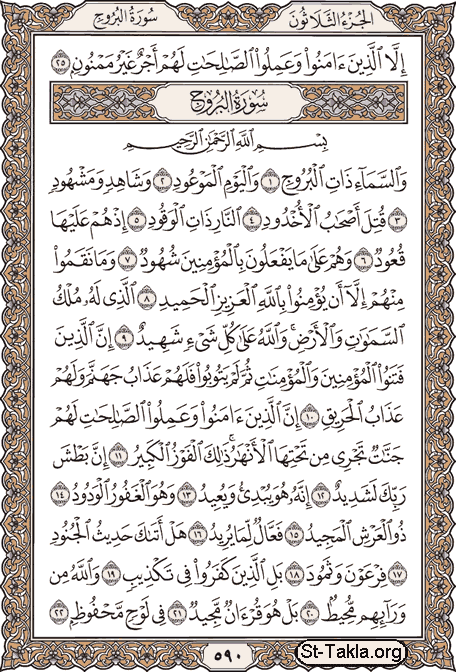 سُورَةُ البُرُوجِ الجُزْءُ الثَّلَاثُونَ
إِلَّا ٱلَّذِينَ ءَامَنُوا۟ وَعَمِلُوا۟ ٱلصَّٰلِحَٰتِ لَهُمْ أَجْرٌ غَيْرُ مَمْنُونٍۭ ٢٥
سُورَةُ البُرُوجِ
بِسْمِ ٱللَّهِ ٱلرَّحْمَٰنِ ٱلرَّحِيمِ
وَٱلسَّمَآءِ ذَاتِ ٱلْبُرُوجِ ١ وَٱلْيَوْمِ ٱلْمَوْعُودِ ٢ وَشَاهِدٍ وَمَشْهُودٍ
٣ قُتِلَ أَصْحَٰبُ ٱلْأُخْدُودِ ٤ ٱلنَّارِ ذَاتِ ٱلْوَقُودِ ٥ إِذْ هُمْ عَلَيْهَا
قُعُودٌ ٦ وَهُمْ عَلَىٰ مَا يَفْعَلُونَ بِٱلْمُؤْمِنِينَ شُهُودٌ ٧ وَمَا نَقَمُوا۟
مِنْهُمْ إِلَّآ أَن يُؤْمِنُوا۟ بِٱللَّهِ ٱلْعَزِيزِ ٱلْحَمِيدِ ٨ ٱلَّذِى لَهُۥ مُلْكُ
ٱلسَّمَٰوَٰتِ وَٱلْأَرْضِ ۚ وَٱللَّهُ عَلَىٰ كُلِّ شَىْءٍ شَهِيدٌ ٩ إِنَّ ٱلَّذِينَ
فَتَنُوا۟ ٱلْمُؤْمِنِينَ وَٱلْمُؤْمِنَٰتِ ثُمَّ لَمْ يَتُوبُوا۟ فَلَهُمْ عَذَابُ جَهَنَّمَ وَلَهُمْ
عَذَابُ ٱلْحَرِيقِ ١٠ إِنَّ ٱلَّذِينَ ءَامَنُوا۟ وَعَمِلُوا۟ ٱلصَّٰلِحَٰتِ لَهُمْ
جَنَّٰتٌ تَجْرِى مِن تَحْتِهَا ٱلْأَنْهَٰرُ ۚ ذَٰلِكَ ٱلْفَوْزُ ٱلْكَبِيرُ ١١ إِنَّ بَطْشَ
رَبِّكَ لَشَدِيدٌ ١٢ إِنَّهُۥ هُوَ يُبْدِئُ وَيُعِيدُ ١٣ وَهُوَ ٱلْغَفُورُ ٱلْوَدُودُ ١٤
ذُو ٱلْعَرْشِ ٱلْمَجِيدُ ١٥ فَعَّالٌ لِّمَا يُرِيدُ ١٦ هَلْ أَتَىٰكَ حَدِيثُ ٱلْجُنُودِ
١٧ فِرْعَوْنَ وَثَمُودَ ١٨ بَلِ ٱلَّذِينَ كَفَرُوا۟ فِى تَكْذِيبٍ ١٩ وَٱللَّهُ مِن
وَرَآئِهِم مُّحِيطٌۢ ٢٠ بَلْ هُوَ قُرْءَانٌ مَّجِيدٌ ٢١ فِى لَوْحٍ مَّحْفُوظٍۭ ٢٢
٥٩٠
St-Takla.org